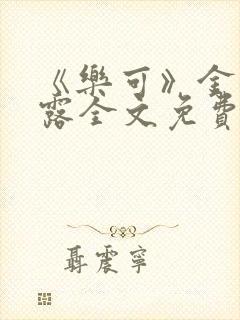 《樂可》金
露全文免費
聶震寧